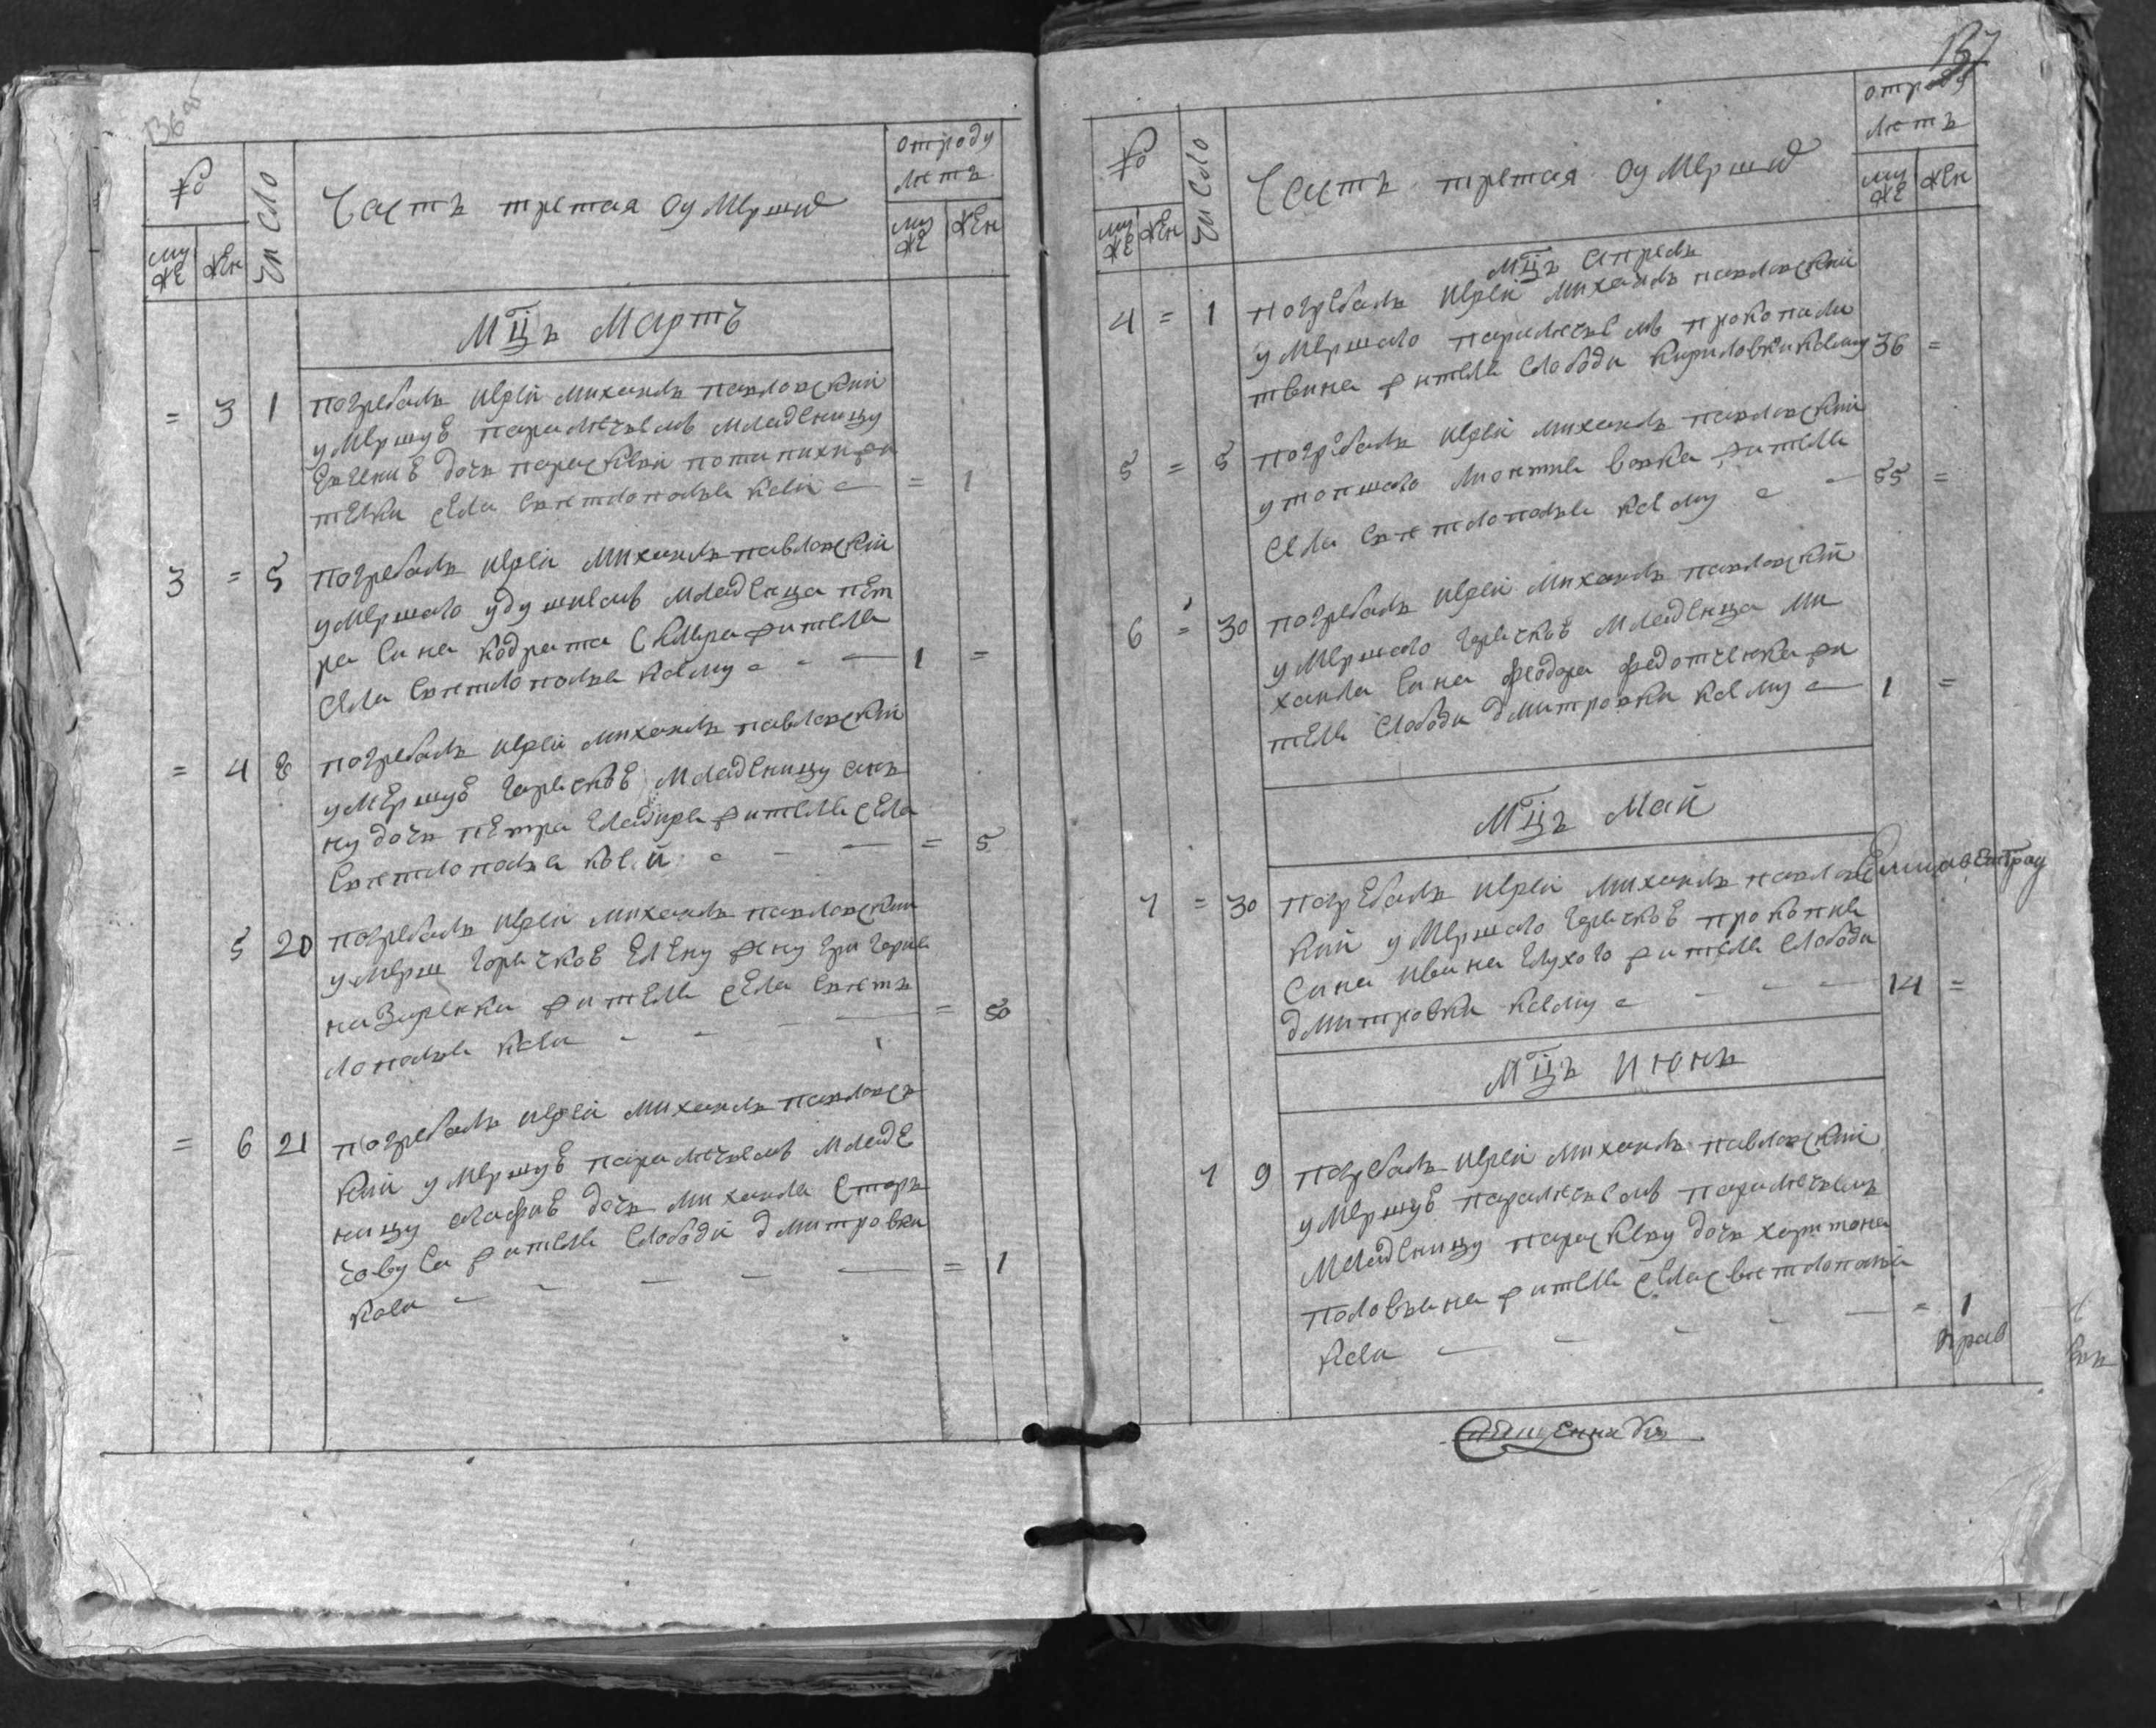 136 об
№
число
Часть третая о умерших
от роду
летъ
муже
жен
муже
жен
Мцъ Мартъ
= 3 1 погребалъ иерей михаилъ павловский
умершуу паралечемъ младеницу
Евгению дочь параскеви потапихи жи
телки села светлополья како = 1
3 = 5 погребалъ иерей михаилъ павловский
умершаго удушиемъ младенца пет
ра сина кодрата скляра жителя
села светлополья коему 1 =
= 4 8 погребалъ иерей михаилъ павловский
умершую горячкою младеницу анъ
ну дочь петра владиря жителя села
светлополья коей = 5
5 20 погребалъ иерей михаилъ павловский
умерш горячкою елену жену григория
назаренка жителя села светъ
лополья коеи = 50
= 6 21 погребалъ иерей михаилъ павловсъ
кий умершую паралечемъ младе
ницу агафию дочь михаила старъ
човуса жителя слободи дмитровки
коеи = 1
137
№
число
Часть третая о умерших
от роду
летъ
муже
жен
муже
жен
Мцъ апрель
4 = 1 погребалъ иерей михаилъ павловский
умершаго паралечемъ прокопа ли
твина жителя слободи кириловки коему 36 =
5 = 5 погребалъ иерей михаилъ павловский
утопшаго леонтия вовка жителя
села светлополья коему 55 =
6 = 30 погребалъ иерей михаилъ павловский
умершаго горячкою младенца ми
хаила сина феодора федотченка жи
теля слободи дмитровки коему 1 =
Мцъ Май
7 = 30 погребалъ иерей михаилъ павловс Елисаветград
кий умершаго горячкою прокопия
сина ивана глухого жителя слободи
дмитровки коему 14 =
Мцъ Июнь
7 9 погребалъ иерей михаилъ павловский
умершую паралечемъ паралечемъ
младеницу параскеву дочь харитона
половъина жителя села светлополья
коеи = 1
прав
Священникъ